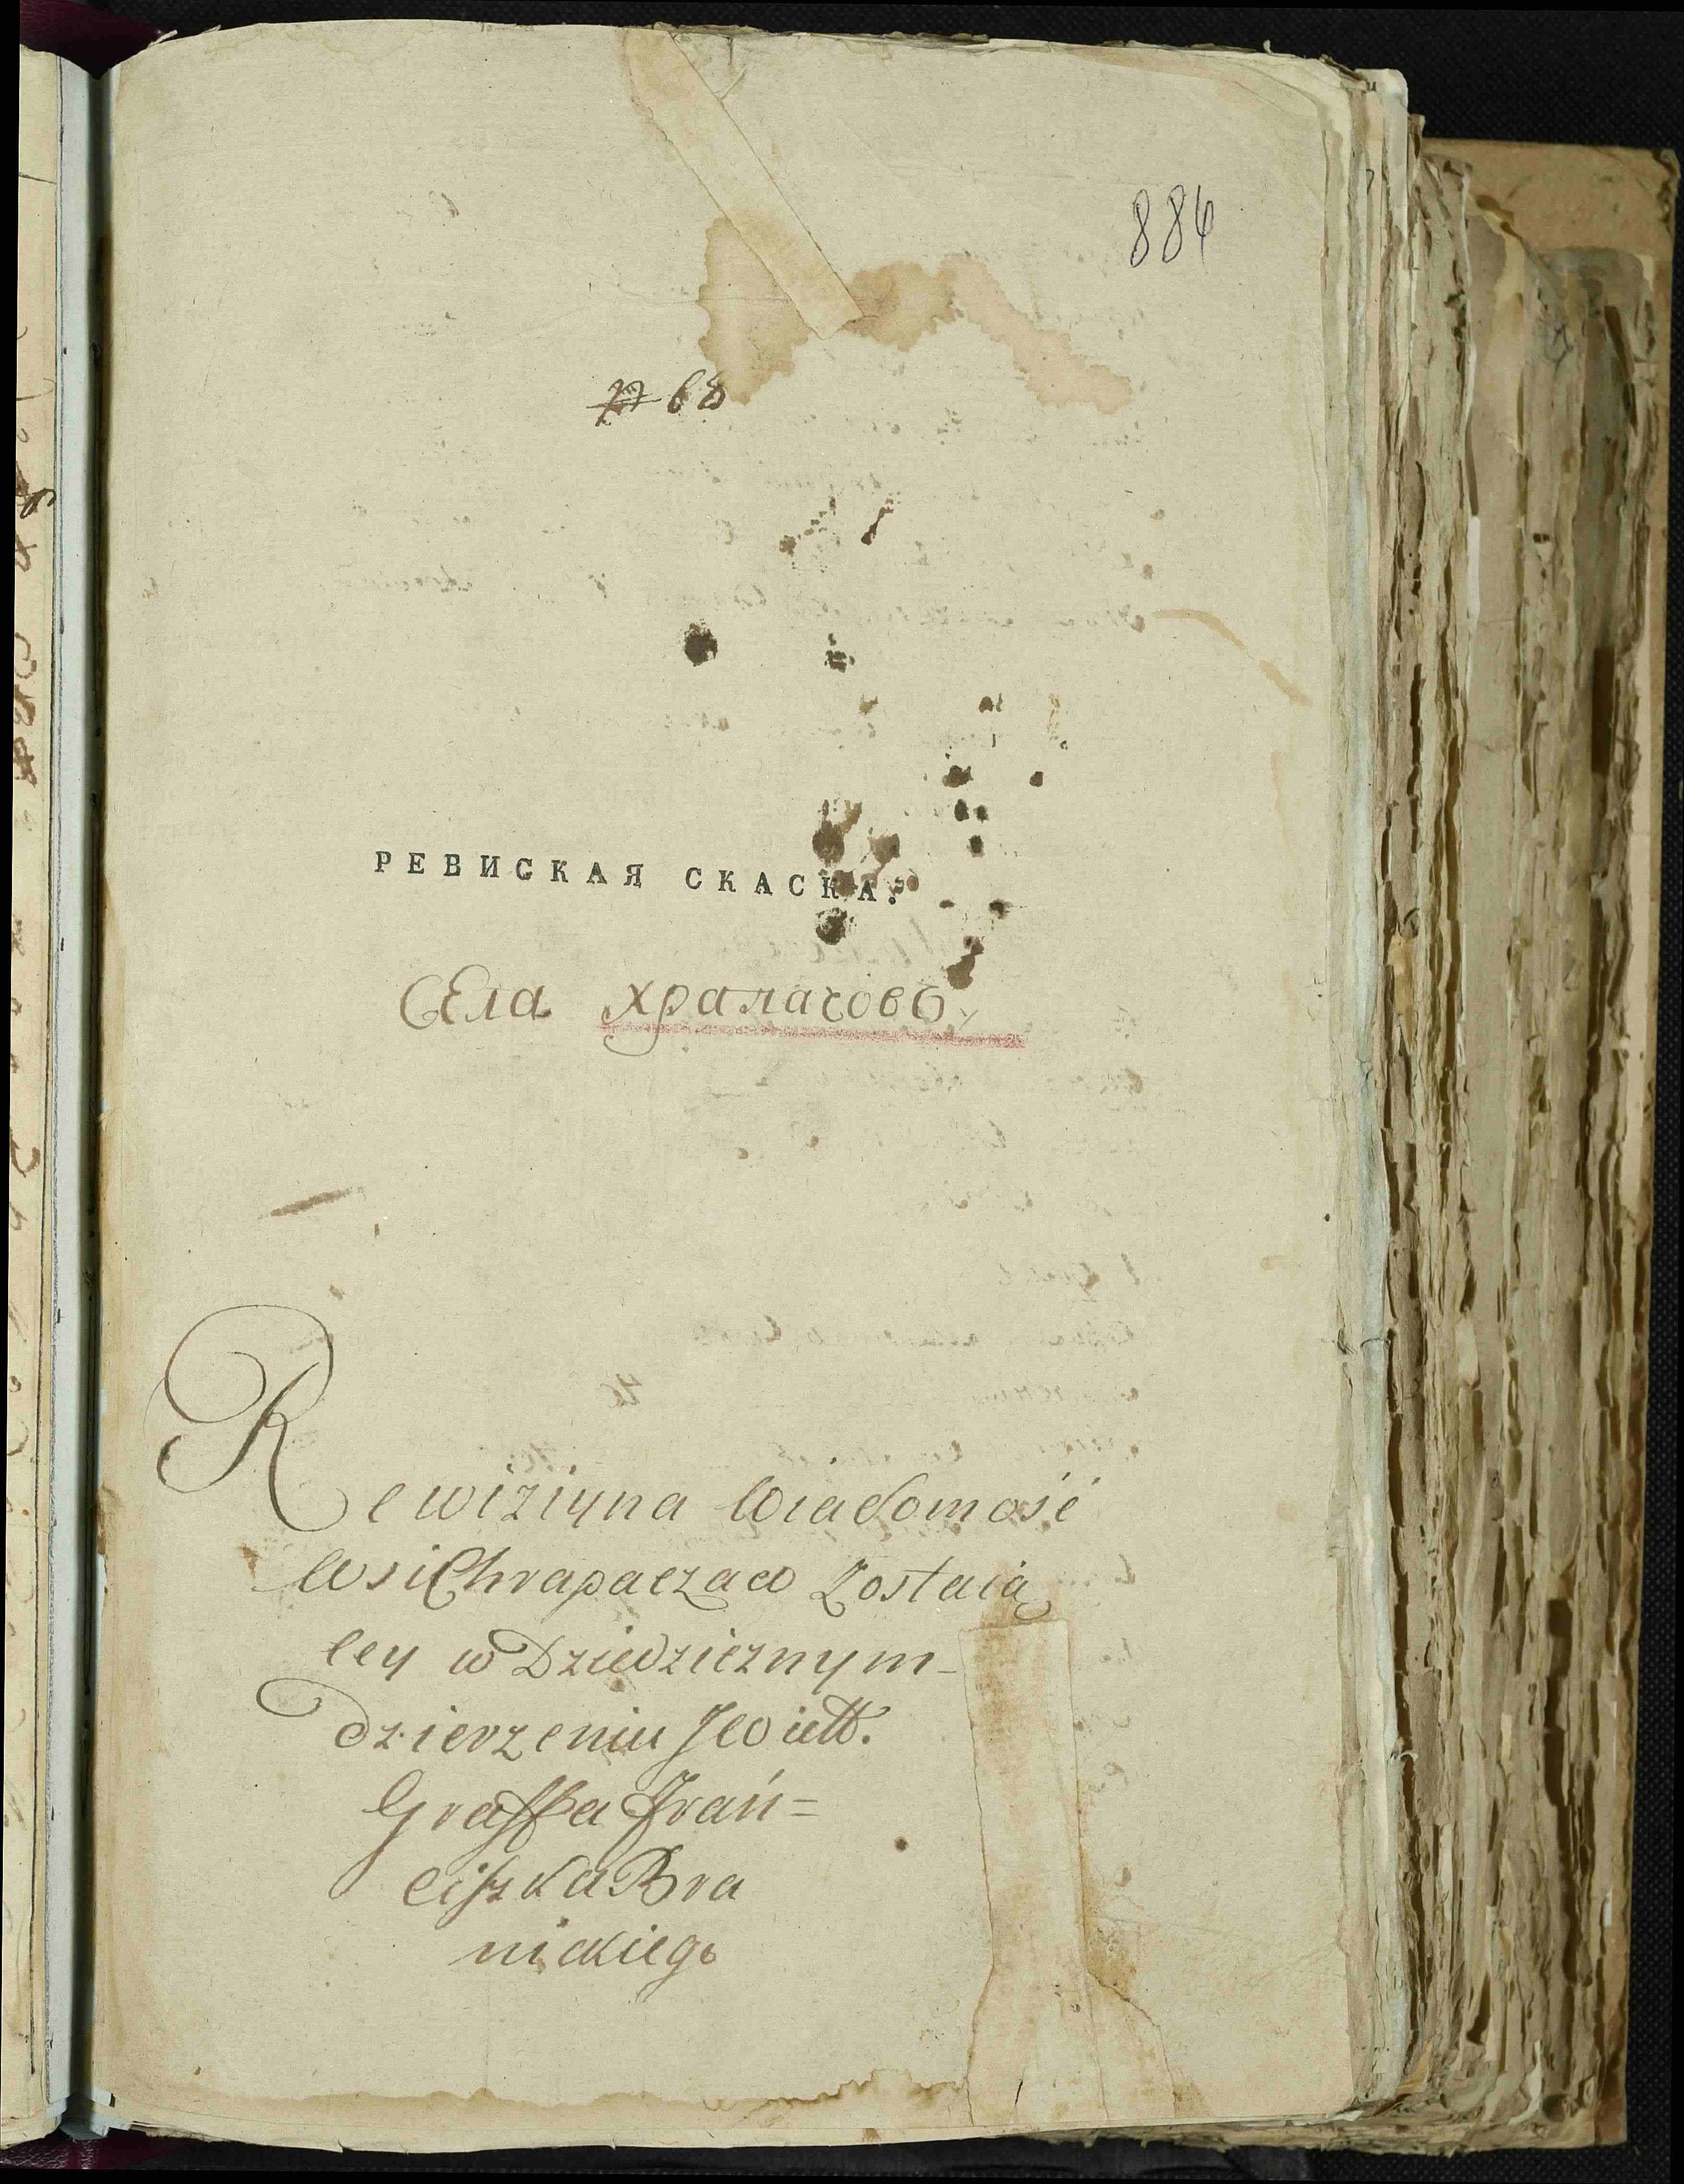 884
68
РЕВИСКАЯ СКАСКА:
Села Храпачовъ
Rewiziyna Wiadomość
Wsi Chrapaczow Zostaią
cey w Dziedzicznym
dzierzeniu JWielł.
Graffa Frań=
ciszka Bra
nickiego